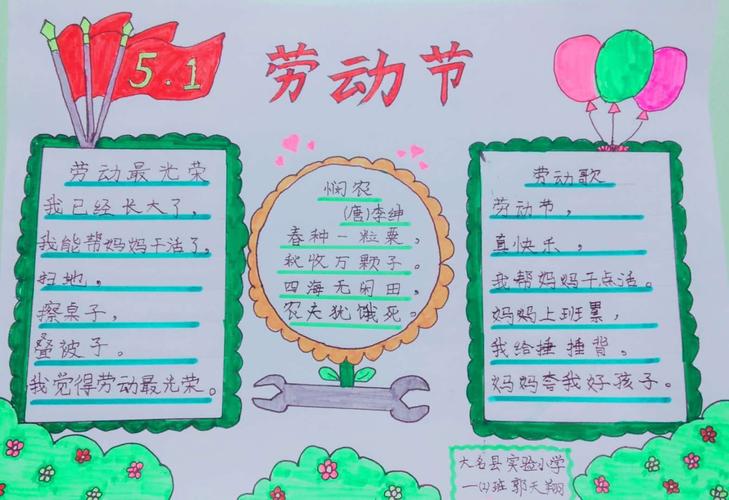 5.1
劳动节
劳动最光荣
我已经长大了,
我能帮妈妈干活了,
扫地,
擦桌子,
叠被子。
我觉得劳动最光荣。
悯农
(唐)李绅
春种一粒粟,
秋收万颗子。
四海无闲田,
农夫犹饿死。
劳动歌
劳动节,
真快乐,
我帮妈妈干点活。
妈妈上班累,
我给捶捶背。
妈妈夸我好孩子。
大名县实验小学
一(2)班 郭天翔